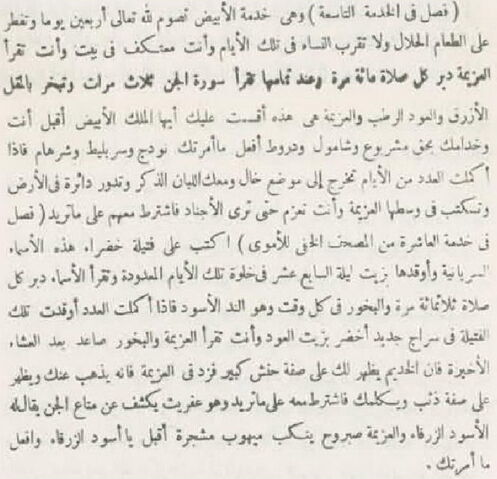 ( فصل فى الخدمة التاسعة ) وهى خدمة الأبيض تصوم لله تعالى أربعين يوما وتفطر
على الطعام الحلال ولا تقرب النساء فى تلك الأيام وأنت معتكف فى بيت وأنت تقرأ
العزيمة دبر كل صلاة مائة مرة وعند تمامها تقرأ سورة الجن ثلاث مرات وتبخر بالمقل
الأزرق والعود الرطب والعزيمة هى هذه أقسمت عليك أيها الملك الأبيض أقبل أنت
وخدامك بحق مشربوع وشامول ودروط أفعل ماأمرتك نودج وسربليط وشرهام فاذا
أكملت العدد من الأيام تخرج إلى موضع خال ومعك اللبان الذكر وتدور دائرة فى الأرض
وتسكتب فى وسطها العزيمة وأنت تعزم حتى ترى الأجناد فاشترط معهم على ماتريد ( فصل
فى خدمة العاشرة من المصحف الخفى للأموى ) اكتب على فتيلة خضراء هذه الأسماء
السريانية وأوقدها بزيت ليلة السابع عشر فى خلوة تلك الأيام المعدودة وتقرأ الأسماء دبر كل
صلاة ثلثمائة مرة والبخور فى كل وقت وهو الند الأسود فاذا أكملت العدد أوقدت تلك
الفتيلة فى سراج جديد أخضر بزيت العود وأنت تقرأ العزيمة والبخور صاعد بعد العشاء
الأخيرة فان الخديم يظهر لك على صفة حنش كبير فزد فى العزيمة فانه يذهب عنك ويظهر
على صفة ذئب ويكلمك فاشترط معه على ماتريد وهو عفريت يكشف عن متاع الجن يقال له
الأسود الزرقاء والعزيمة صبروح ينكب ميهوب مشجرة أقبل يا أسود الزرقاء وافعل
ما أمرتك .